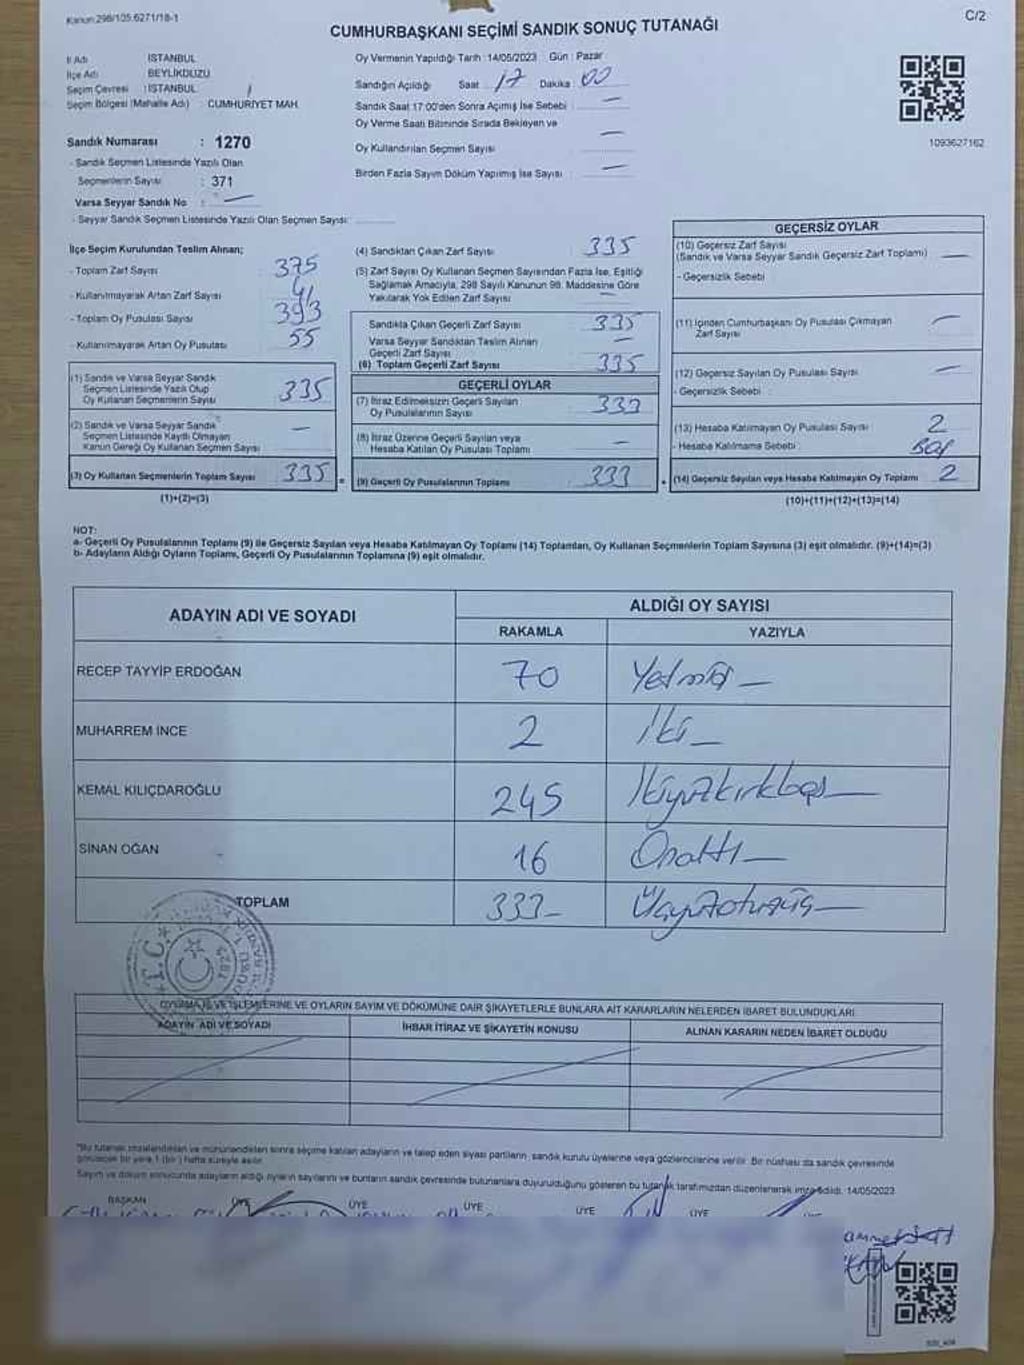 Kanun 298/105.6271/18-1
C/2
CUMHURBAŞKANI SEÇİMİ SANDIK SONUÇ TUTANAĞI
İl Adı : İSTANBUL
İlçe Adı : BEYLİKDÜZÜ
Seçim Çevresi : İSTANBUL
Seçim Bölgesi (Mahalle Adı) : CUMHURİYET MAH.
Sandık Numarası : 1270
- Sandık Seçmen Listesinde Yazılı Olan
Seçmenlerin Sayısı : 371
Varsa Seyyar Sandık No : —
- Seyyar Sandık Seçmen Listesinde Yazılı Olan Seçmen Sayısı:
Oy Vermenin Yapıldığı Tarih : 14/05/2023 Gün : Pazar
Sandığın Açıldığı Saat : 17 Dakika : 00
Sandık Saat 17:00'den Sonra Açımış İse Sebebi : —
Oy Verme Saati Bitiminde Sırada Bekleyen ve
Oy Kullandırılan Seçmen Sayısı —
Birden Fazla Sayım Döküm Yapılmış İse Sayısı : —
1093627162
İlçe Seçim Kurulundan Teslim Alınan;
- Toplam Zarf Sayısı 375
- Kullanılmayarak Artan Zarf Sayısı 41
- Toplam Oy Pusulası Sayısı 393
- Kullanılmayarak Artan Oy Pusulası 55
(1) Sandık ve Varsa Seyyar Sandık
Seçmen Listesinde Yazılı Olup
Oy Kullanan Seçmenlerin Sayısı 335
(2) Sandık ve Varsa Seyyar Sandık
Seçmen Listesinde Kayıtlı Olmayan
Kanun Gereği Oy Kullanan Seçmen Sayısı —
(3) Oy Kullanan Seçmenlerin Toplam Sayısı 335
(1)+(2)=(3)
(4) Sandıktan Çıkan Zarf Sayısı 335
(5) Zarf Sayısı Oy Kullanan Seçmen Sayısından Fazla İse, Eşitliği
Sağlamak Amacıyla, 298 Sayılı Kanunun 98. Maddesine Göre
Yakılarak Yok Edilen Zarf Sayısı
Sandıkla Çıkan Geçerli Zarf Sayısı 335
Varsa Seyyar Sandıktan Teslim Alınan
Geçerli Zarf Sayısı —
(6) Toplam Geçerli Zarf Sayısı 335
GEÇERLİ OYLAR
(7) İtiraz Edilmeksizin Geçerli Sayılan
Oy Pusulalarının Sayısı 333
(8) İtiraz Üzerine Geçerli Sayılan veya
Hesaba Katılan Oy Pusulası Toplamı —
(9) Geçerli Oy Pusulalarının Toplamı 333
GEÇERSİZ OYLAR
(10) Geçersiz Zarf Sayısı
(Sandık ve Varsa Seyyar Sandık Geçersiz Zarf Toplamı) —
- Geçersizlik Sebebi
(11) İçinden Cumhurbaşkanı Oy Pusulası Çıkmayan
Zarf Sayısı —
(12) Geçersiz Sayılan Oy Pusulası Sayısı —
- Geçersizlik Sebebi :
(13) Hesaba Katılmayan Oy Pusulası Sayısı 2
- Hesaba Katılmama Sebebi : Boş
(14) Geçersiz Sayılan veya Hesaba Katılmayan Oy Toplamı 2
(10)+(11)+(12)+(13)=(14)
NOT:
a- Geçerli Oy Pusulalarının Toplamı (9) ile Geçersiz Sayılan veya Hesaba Katılmayan Oy Toplamı (14) Toplamları, Oy Kullanan Seçmenlerin Toplam Sayısına (3) eşit olmalıdır. (9)+(14)=(3)
b- Adayların Aldığı Oyların Toplamı, Geçerli Oy Pusulalarının Toplamına (9) eşit olmalıdır.
ADAYIN ADI VE SOYADI
ALDIĞI OY SAYISI
RAKAMLA YAZIYLA
RECEP TAYYİP ERDOĞAN 70 Yetmiş —
MUHARREM İNCE 2 İki —
KEMAL KILIÇDAROĞLU 245 İkiyüzkırkbeş —
SİNAN OĞAN 16 Onaltı —
TOPLAM 333 — Üçyüzotuzüç —
T.C.
OYLAMA İŞ VE İŞLEMLERİNE VE OYLARIN SAYIM VE DÖKÜMÜNE DAİR ŞİKAYETLERLE BUNLARA AİT KARARLARIN NELERDEN İBARET BULUNDUKLARI
ADAYIN ADI VE SOYADI İHBAR İTİRAZ VE ŞİKAYETİN KONUSU ALINAN KARARIN NEDEN İBARET OLDUĞU
"Bu tutanak imzalandıktan ve mühürlendikten sonra seçime katılan adayların ve talep eden siyasi partilerin, sandık kurulu üyelerine veya gözlemcilerine verilir. Bir nüshası da sandık çevresinde
görülecek bir yere 1 (bir) hafta süreyle asılır.
Sayım ve döküm sonucunda adayların aldığı oyların sayılarını ve bunların sandık çevresinde bulunanlara duyurulduğunu gösteren bu tutanak tarafımızdan düzenlenerek imza edildi. 14/05/2023
BAŞKAN ÜYE ÜYE ÜYE ÜYE ÜYE ÜYE